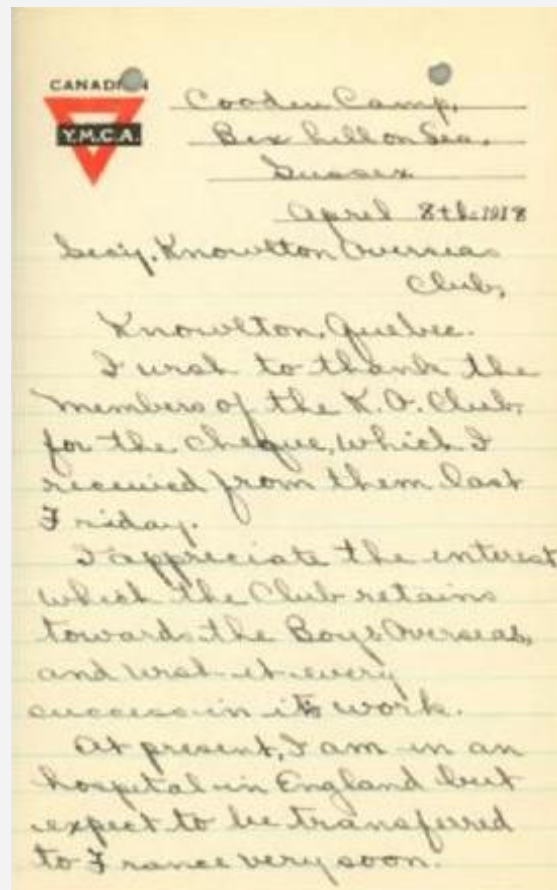 CANADIAN
Y.M.C.A.
Cooden Camp,
Bex hill on Sea,
Sussex
April 8th 1918
Sec'y, Knowlton Overseas
Club,
Knowlton, Quebec.
I wish to thank the
members of the K.O. Club,
for the cheque, which I
received from them last
Friday.
I appreciate the interest
which the Club retains
towards the Boys Overseas,
and wish it every
success in its work.
At present, I am in an
hospital in England but
expect to be transferred
to France very soon.